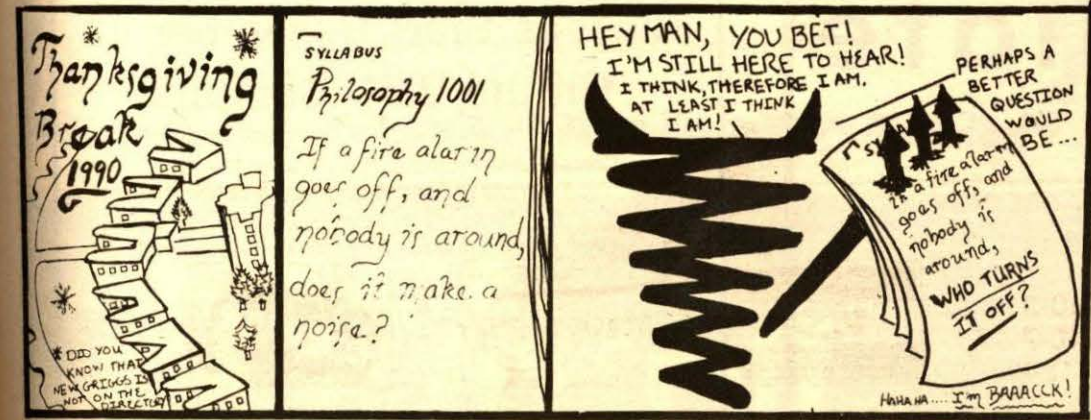 Thanksgiving
Break
1990
* DID YOU
KNOW THAT
NEW GRIGGS IS
NOT ON THE
DIRECTORY
SYLLABUS
Philosophy 1001
If a fire alarm
goes off, and
nobody is around,
does it make a
noise?
HEY MAN, YOU BET!
I'M STILL HERE TO HEAR!
I THINK, THEREFORE I AM.
AT LEAST I THINK
I AM!
PERHAPS A
BETTER
QUESTION
WOULD
BE...
a fire alarm
goes off, and
nobody is
around,
WHO TURNS
IT OFF?
HAHAHA.... I'm BAAACCK!